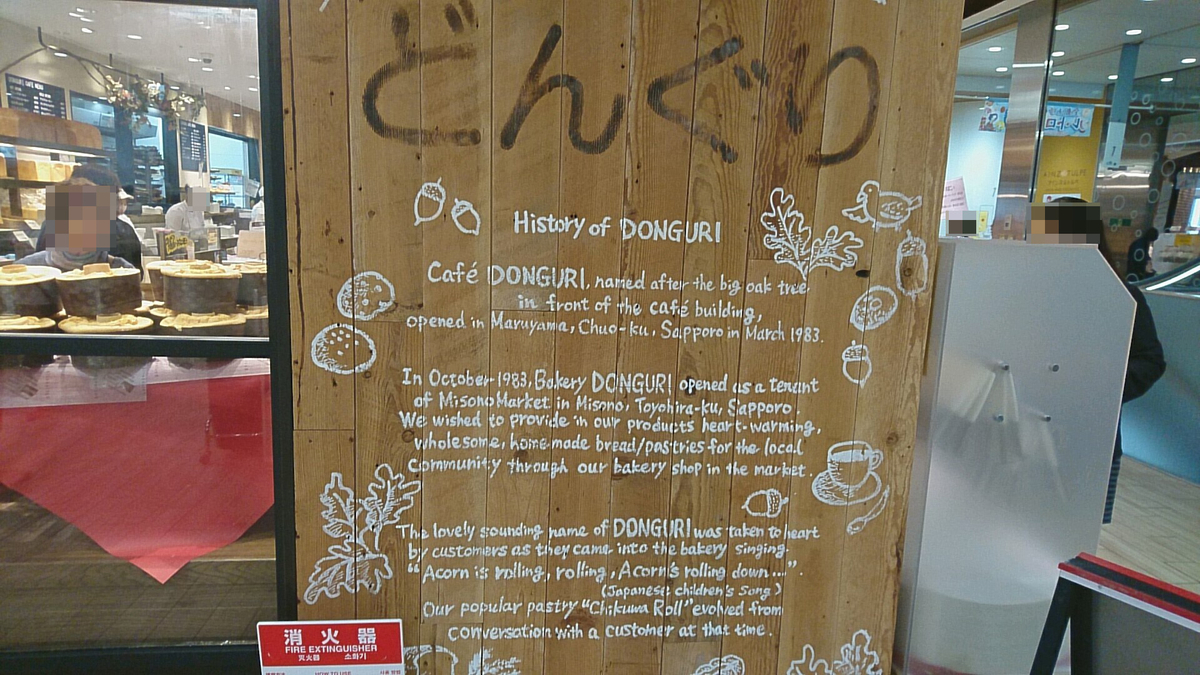 どんぐり
History of DONGURI
Café DONGURI, named after the big oak tree
in front of the café building,
opened in Maruyama, Chuo-ku, Sapporo in March 1983.
In October 1983, Bakery DONGURI opened as a tenant
of Misono Market in Misono, Toyohira-ku, Sapporo.
We wished to provide in our products heart-warming,
wholesome, home-made bread/pastries for the local
community through our bakery shop in the market.
The lovely sounding name of DONGURI was taken to heart
by customers as they came into the bakery singing
“Acorn is rolling, rolling, Acorn's rolling down...”.
(Japanese children's Song)
Our popular pastry “Chikuwa Roll” evolved from
conversation with a customer at that time.
消火器
FIRE EXTINGUISHER
灭火器 소화기
HOW TO USE